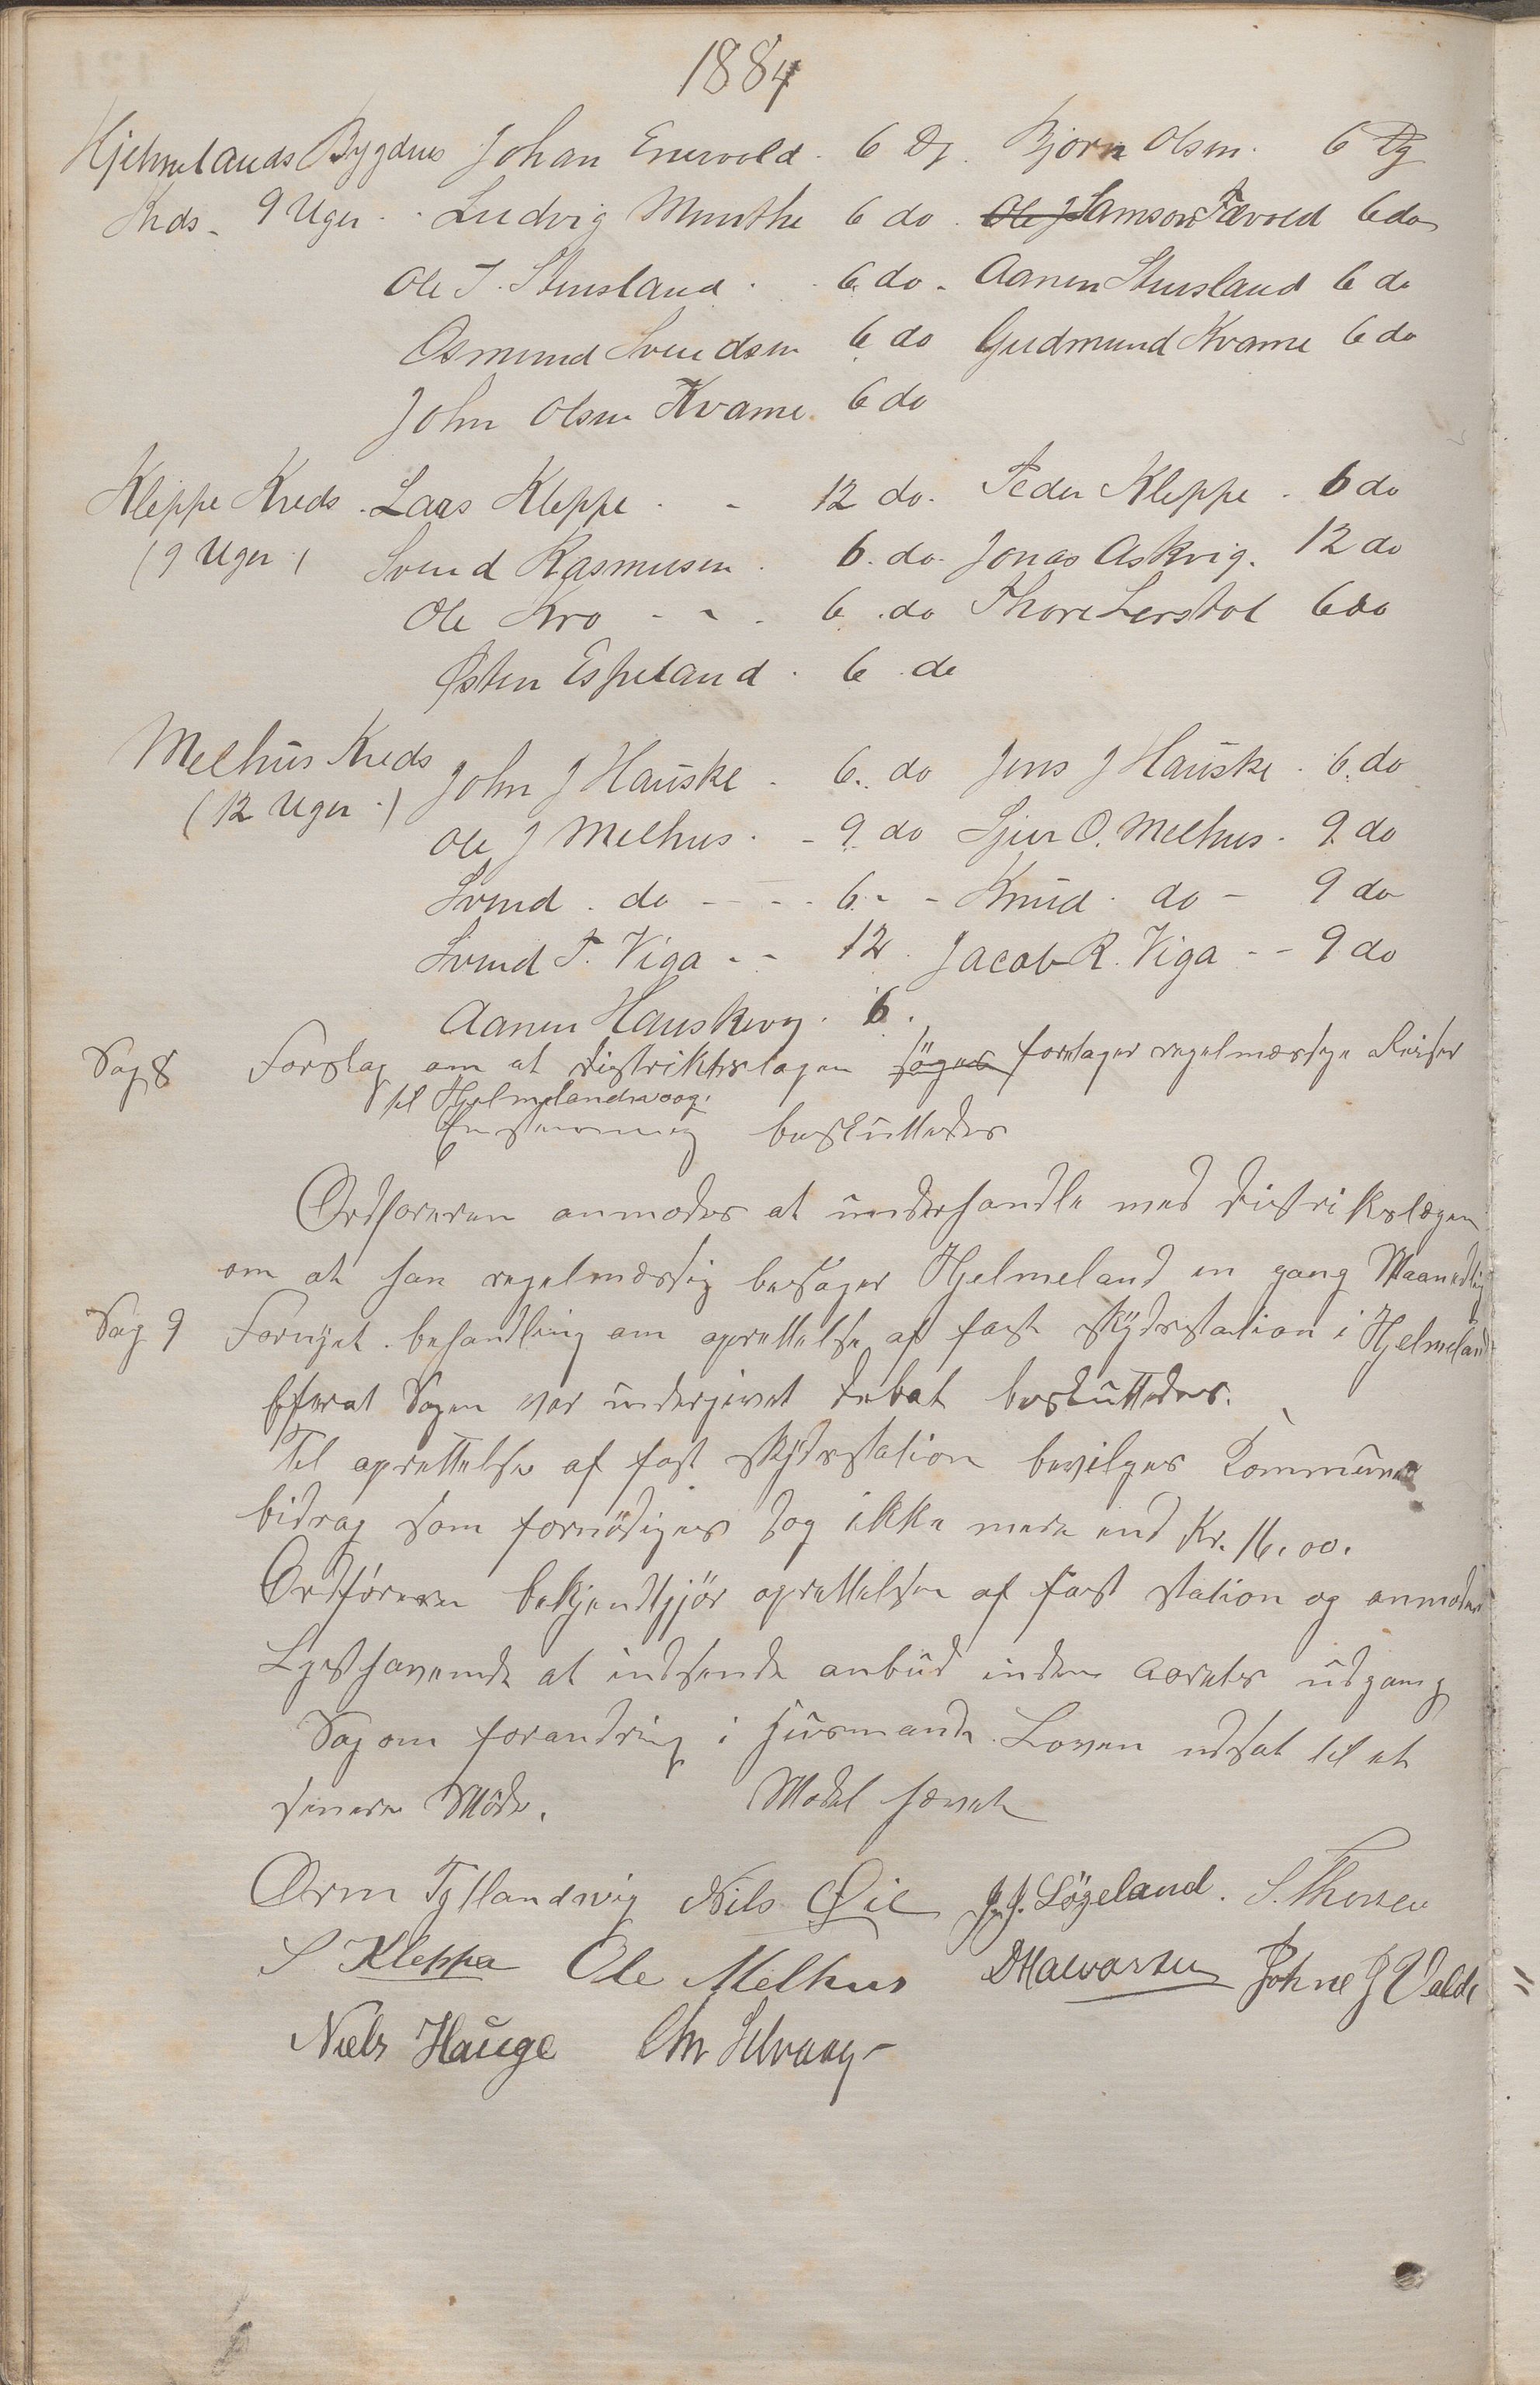 1884
Hjelmelands Bygdnes Johan Enevold. 6 Dg. Bjørn Olsen. 6 Dg
Kreds - 9 Uger. - Ludvig Munthe 6 do. Ole J Samson Tævold 6 do
Ole T. Stensland. 6 do - Aanen Stensland 6 do
Osmund Svendsen 6 do Gudmund Kvame 6 do
John Olsen Kvame. 6 do
Kleppe Kreds. Lars Kleppe. - 12 do. Peder Kleppe. 6 do
(9 Uger.) Svend Rasmusen. 6. do. Jonas Askvig. 12 do
Ole Kro - - . 6. do Thore Lerstøl 6 do
Østen Espeland. 6. do
Melhus Kreds John J Hauske. 6. do Jens J Hauske. 6. do
(12 Uger.) Ole J Melhus. - 9. do Sjur O. Melhus. 9. do
Svend. do - - - 6. - - Knud. do - 9 do
Svend T. Viga - - 12. Jacob R. Viga - - 9 do
Aanen Hauskevg. 6.
Sag 8 Forslag om at Distriktslægen søges foretager regelmæssige Reiser
til Hjelmelandsvaag.
Enstemmig besluttedes
Ordføreren anmodes at underhandle med Distriktslægen
om at han regelmæssig besøger Hjelmeland en gang Maanedlig
Sag 9 Fornyet behandling om oprettelse af fast skydsstation i Hjelmeland
Efterat Sagen var undergivet Debat besluttedes.
Til oprettelse af fast skydsstation bevilges Kommune
bidrag som fornødiges dog ikke mere end Kr. 16.00.
Ordføreren bekjendtgjør oprettelsen af fast station og anmoder
Lysthavende at indsende anbud inden Aarets udgang
Sag om forandring i Husmands Loven udsat til et
senere Møde. Mødet hævet
Orm Tytlandsvig Nils Øie J. J. Løgeland. S. Thorsen
S Kleppa Ole Melhus D Halvorsen Johne J Valde
Niels Hauge Chr Selvaag